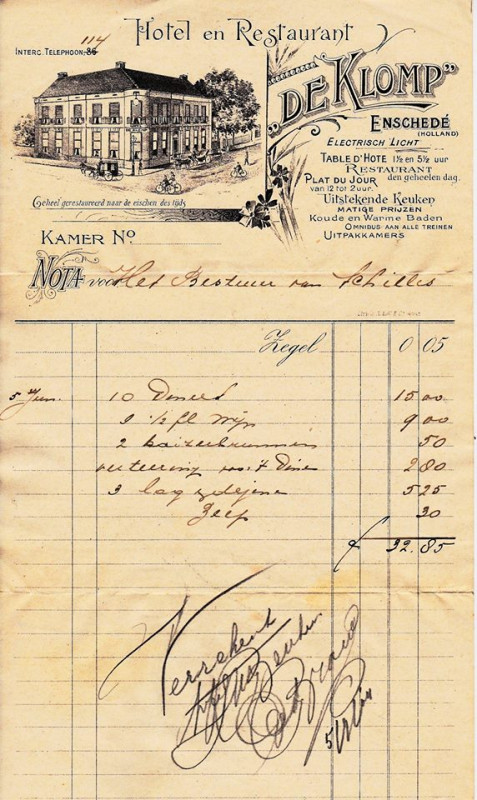 Hotel en Restaurant
114
INTERC. TELEPHOON, 36
"DE KLOMP"
ENSCHEDÉ
(HOLLAND)
ELECTRISCH LICHT
TABLE D'HOTE 1½ en 5½ uur
RESTAURANT
den geheelen dag.
PLAT DU JOUR
van 12 tot 2 uur.
Uitstekende Keuken
MATIGE PRIJZEN
Koude en Warme Baden
OMNIBUS AAN ALLE TREINEN
UITPAKKAMERS
Geheel gerestaureerd naar de eischen des tijds
KAMER No.
NOTA voor Het Bestuur van Schilles
Zegel 0 05
5 Jun. 10 Diners 15 00
9 ½ fl Wijn 9 00
2 kaizerbrunnen 50
verteering voor 't Diner 2 80
3 log & dejener 5 25
Zeep 30
f 32.85